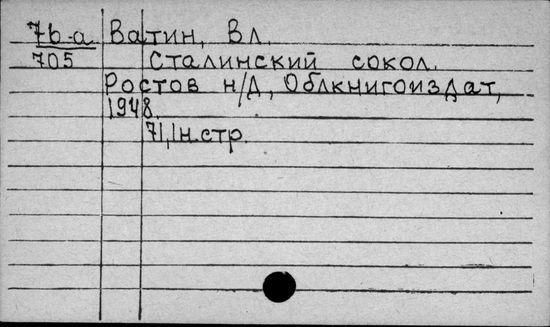 7б-а Ватин, Вл.
705 Сталинский сокол.
Ростов н/Д, Облкнигоиздат,
1948.
71, 1 н.стр.